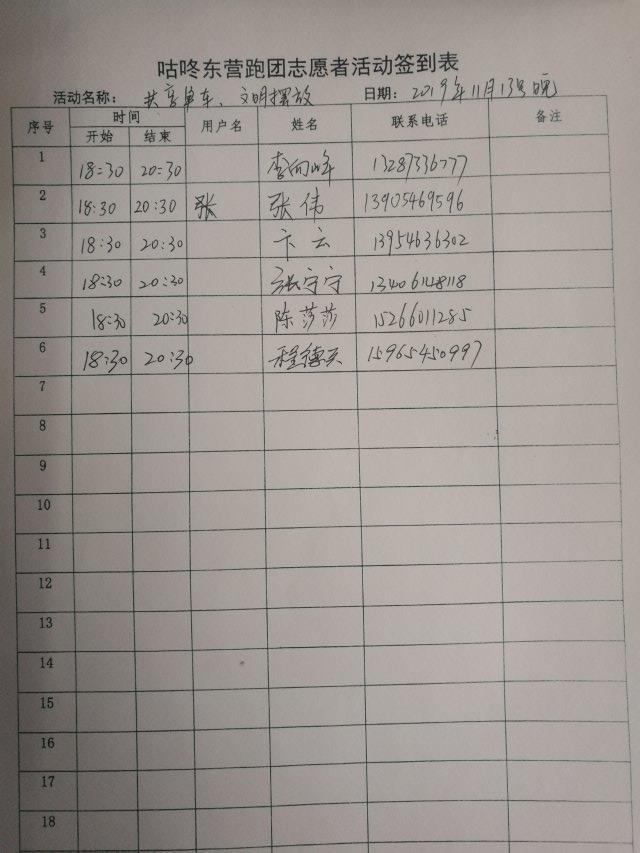 咕咚东营跑团志愿者活动签到表
活动名称: 共享单车、文明摆放 日期: 2019年11月13号晚
序号 时间 用户名 姓名 联系电话 备注
开始 结束
1 18:30 20:30 李向峰 13287336777
2 18:30 20:30 张 张伟 13905469596
3 18:30 20:30 卞云 13954636302
4 18:30 20:30 张宁宁 13406128118
5 18:30 20:30 陈莎莎 15266011285
6 18:30 20:30 程德 15965450997
7
8
9
10
11
12
13
14
15
16
17
18